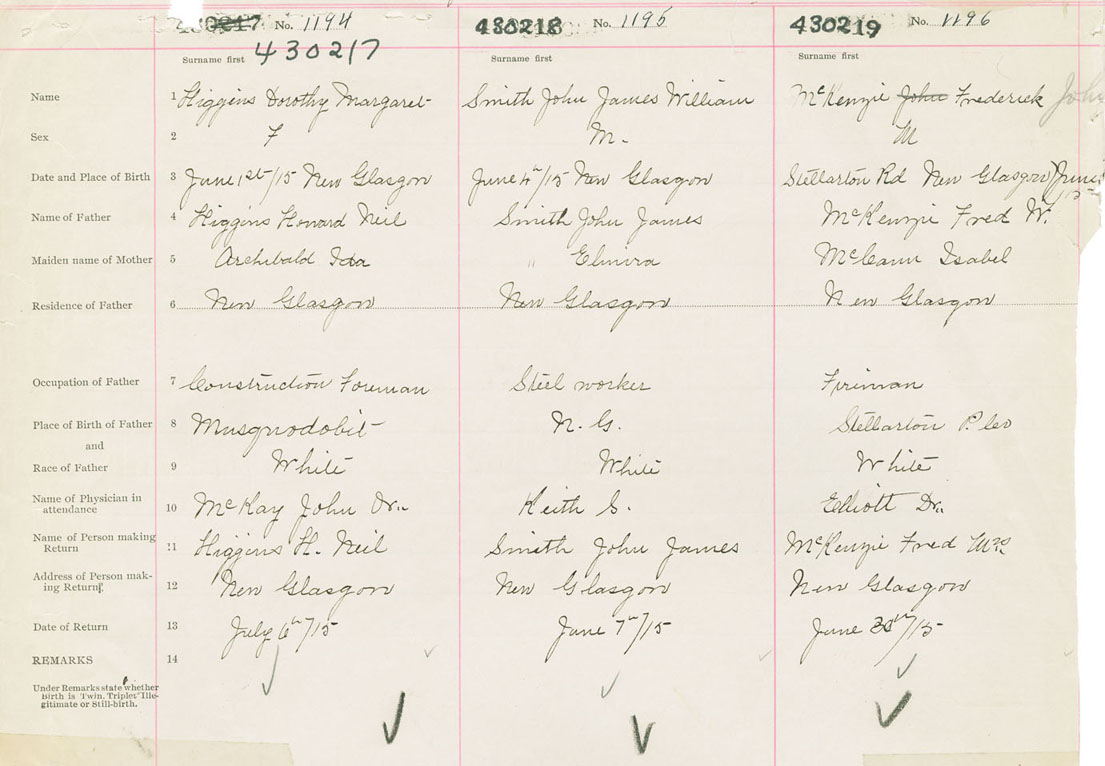 430217 No. 1194 430218 No. 1195 430219 No. 1196
430217
Surname first Surname first Surname first
Name 1 Higgins Dorothy Margaret Smith John James William McKenzie John Frederick John
Sex 2 F M. M
Date and Place of Birth 3 June 1st/15 New Glasgow June 4th/15 New Glasgow Stellarton Rd New Glasgow June
Name of Father 4 Higgins Howard Neil Smith John James McKenzie Fred W.
Maiden name of Mother 5 Archibald Ida " Elmira McCann Isabel
Residence of Father 6 New Glasgow New Glasgow New Glasgow
Occupation of Father 7 Construction Foreman Steel worker Fireman
Place of Birth of Father 8 Musquodobit N. G. Stellarton P.
and
Race of Father 9 White White White
Name of Physician in
attendance 10 McKay John Dr. Keith S. Elliott Dr.
Name of Person making
Return 11 Higgins H. Neil Smith John James McKenzie Fred
Address of Person mak-
ing Return 12 New Glasgow New Glasgow New Glasgow
Date of Return 13 July 6th/15 June 7th/15 June 30th/15
REMARKS 14
Under Remarks state whether
Birth is Twin, Triplet Ille-
gitimate or Still-birth.